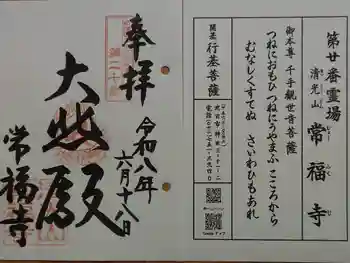 第廿番霊場
清光山 常福寺
じょう ふく じ
御本尊 千手観世音菩薩
つねにおもひ つねにうやまふ こころから
むなしくすてぬ さいわひもあれ
開基 行基菩薩
奉拝
令和八年
六月十八日
大悲殿
常福寺